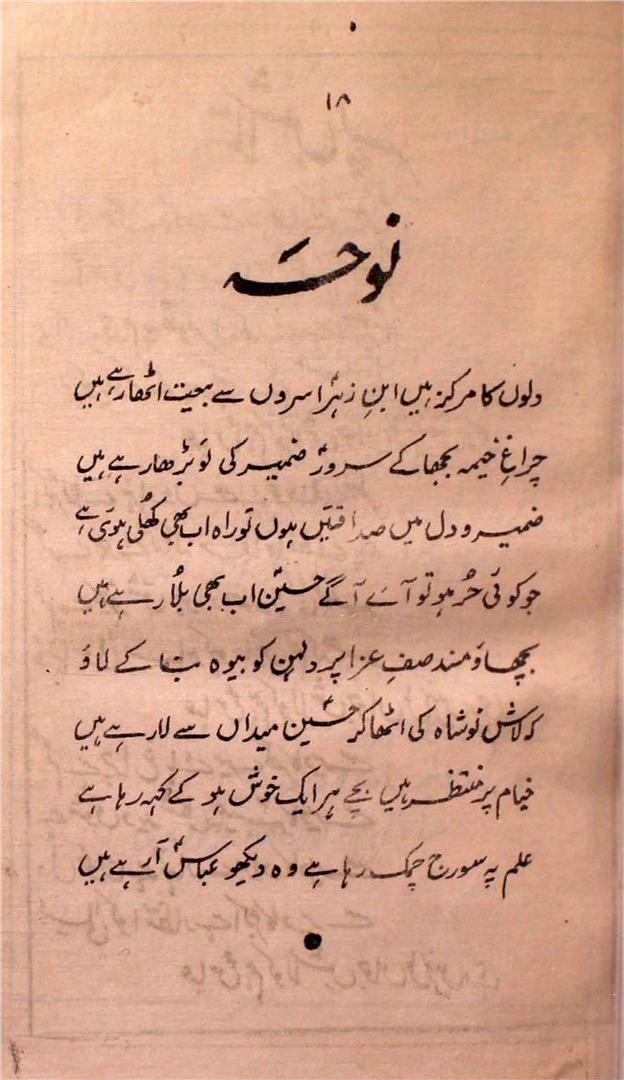 ۱۸
نوحہ
دلوں کا مرکز ہیں ابنِ زہرؑا سروں سے بیعت اٹھا رہے ہیں
چراغِ خیمہ بجھا کے سرورؑ ضمیر کی لَو بڑھا رہے ہیں
ضمیر و دل میں صداقتیں ہوں تو راہ اب بھی کھُلی ہوئی ہے
جو کوئی حُر ہو تو آئے آگے حسینؑ اب بھی بلُا رہے ہیں
بچھاؤ مسند صفِ عزا پر دلہن کو بیوہ بنا کے لاؤ
کہ لاش نوشاہ کی اٹھا کر حسینؑ میداں سے لا رہے ہیں
خیام پر منتظر ہیں بچے ہر ایک خوش ہو کے کہہ رہا ہے
علم پہ سورج چمک رہا ہے وہ دیکھو عباسؑ آ رہے ہیں